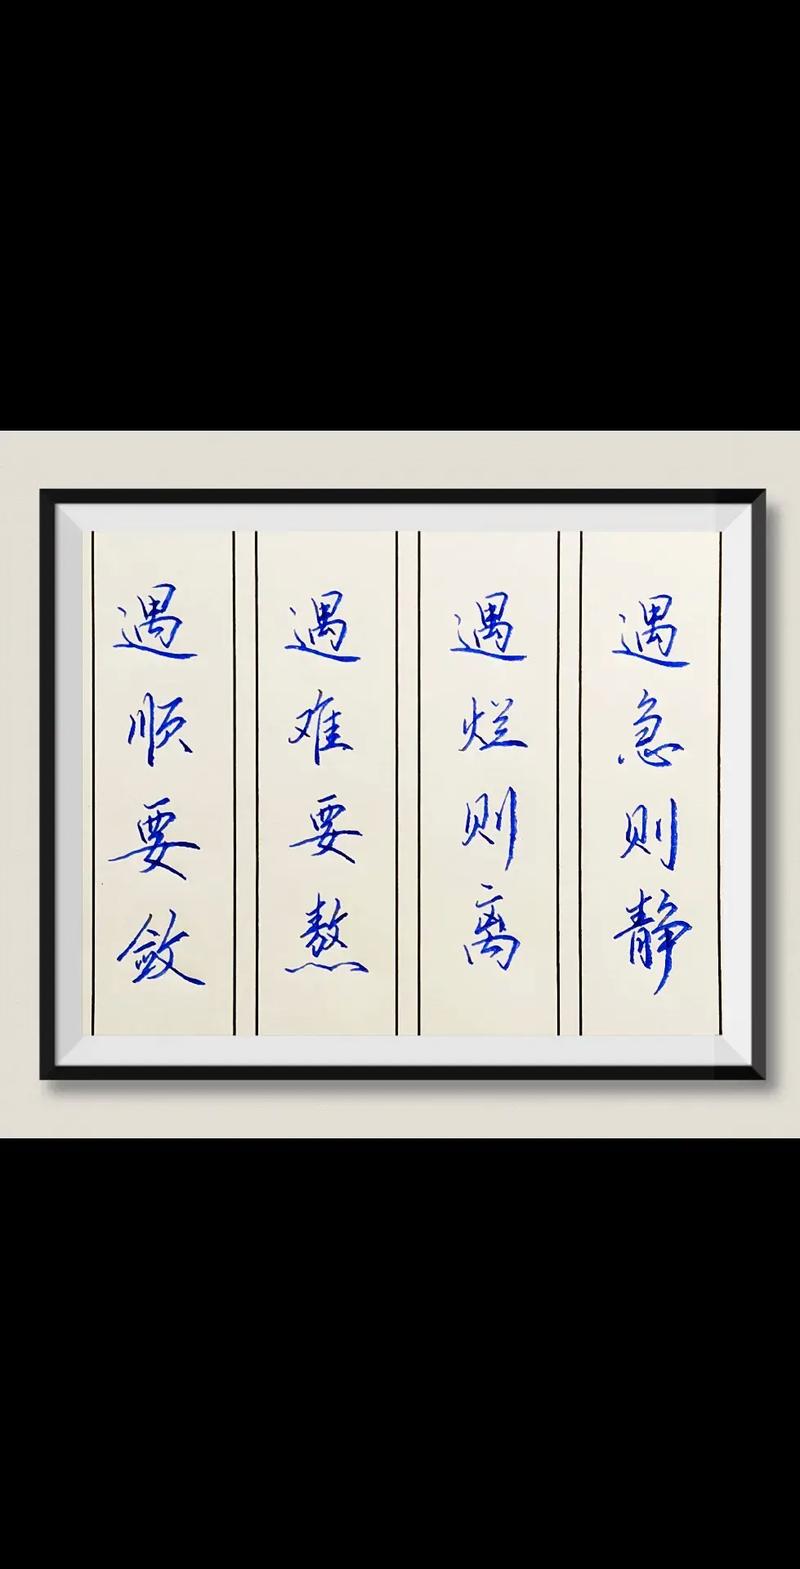 遇急则静
遇烂则离
遇难要熬
遇顺要敛